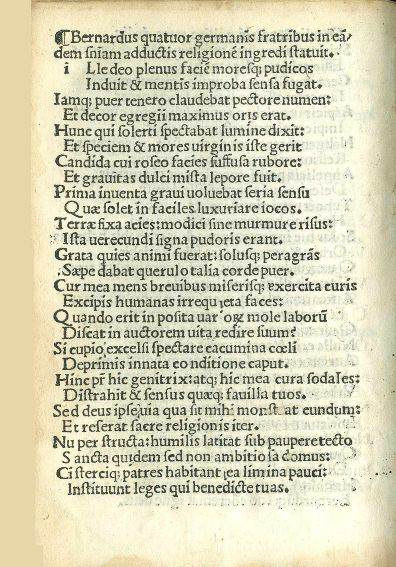 ¶Bernardus quatuor germanis fratribus in eã/
dem sñiam adductis religionẽ ingredi statuit.
i Lle deo plenus faciẽ moresq; pudicos
Induit & mentis improba sensa fugat.
Iamq; puer tenero claudebat pectore numen:
Et decor egregii maximus oris erat.
Hunc qui solerti spectabat lumine dixit:
Et speciem & mores virginis iste gerit
Candida cui roseo facies suffusa rubore:
Et grauitas dulci mista lepore fuit.
Prima inuenta graui voluebat seria sensu
Quæ solet in faciles luxuriare iocos.
Terræ fixa acies: modici sine murmure risus:
Ista uerecundi signa pudoris erant.
Grata quies animi fuerat: solusq; peragrãs
Sæpe dabat querulo talia corde puer.
Cur mea mens breuibus miserisq; exercita curis
Excipis humanas irrequieta faces:
Quando erit in posita uar orq; mole laborũ
Discat in auctorem uita redire suum?
Si cupio excelsi spectare cacumina cœli
Deprimis innata conditione caput.
Hinc pñ hic genitrix: atq; hic mea cura sodales:
Distrahit & sensus quæq; fauilla tuos.
Sed deus ipse uia qua sit mihi monst at eundum:
Et reserat sacre religionis iter.
Nu per structa: humilis latitat sub paupere tecto
Sancta quidem sed non ambitiosa domus:
Cisterciq; patres habitant ea limina pauci:
Instituunt leges qui benedicte tuas.